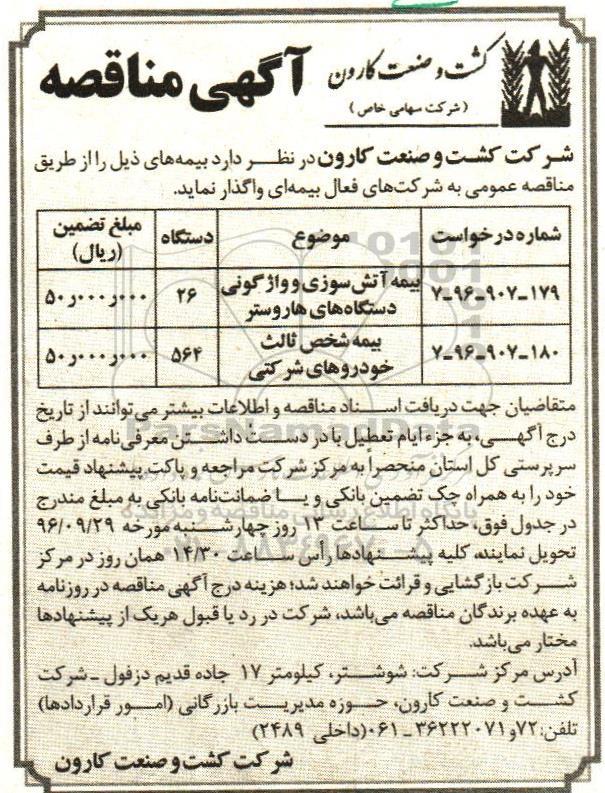 کشت و صنعت کارون
(شرکت سهامی خاص)
آگهی مناقصه
شرکت کشت و صنعت کارون در نظر دارد بیمه‌های ذیل را از طریق
مناقصه عمومی به شرکت‌های فعال بیمه‌ای واگذار نماید.
شماره درخواست موضوع دستگاه مبلغ تضمین (ریال)
۷-۹۶-۹۰۷-۱۷۹ بیمه آتش‌سوزی و واژگونی دستگاه‌های هاروستر ۲۶ ۵۰ر۰۰۰ر۰۰۰
۷-۹۶-۹۰۷-۱۸۰ بیمه شخص ثالث خودروهای شرکتی ۵۶۴ ۵۰ر۰۰۰ر۰۰۰
متقاضیان جهت دریافت اسناد مناقصه و اطلاعات بیشتر می‌توانند از تاریخ
درج آگهی، به جزء ایام تعطیل با در دست داشتن معرفی‌نامه از طرف
سرپرستی کل استان منحصراً به مرکز شرکت مراجعه و پاکت پیشنهاد قیمت
خود را به همراه چک تضمین بانکی و یا ضمانت‌نامه بانکی به مبلغ مندرج
در جدول فوق، حداکثر تا ساعت ۱۳ روز چهارشنبه مورخه ۹۶/۰۹/۲۹
تحویل نمایند، کلیه پیشنهادها رأس ساعت ۱۴/۳۰ همان روز در مرکز
شرکت بازگشایی و قرائت خواهند شد؛ هزینه درج آگهی مناقصه در روزنامه
به عهده برندگان مناقصه می‌باشد، شرکت در رد یا قبول هریک از پیشنهادها
مختار می‌باشد.
آدرس مرکز شرکت: شوشتر، کیلومتر ۱۷ جاده قدیم دزفول - شرکت
کشت و صنعت کارون، حوزه مدیریت بازرگانی (امور قراردادها)
تلفن: ۷۲و۳۶۲۲۲۰۷۱-۰۶۱ (داخلی ۲۴۸۹)
شرکت کشت و صنعت کارون
ParsNamadData